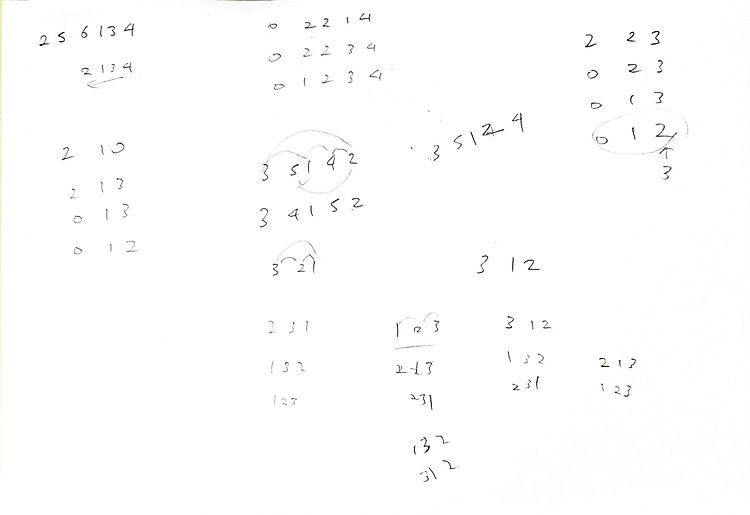 2 5 6 1 3 4
2 1 3 4
0 2 2 1 4
0 2 2 3 4
0 1 2 3 4
2 2 3
0 2 3
0 1 3
0 1 2
3
2 1 0
2 1 3
0 1 3
0 1 2
3 5 1 4 2
3 4 1 5 2
3 2 1
2 3 1
1 3 2
1 2 3
3 5 1 2 4
3 1 2
1 2 3
2 1 3
2 3 1
1 3 2
3 1 2
3 1 2
1 3 2
2 3 1
2 1 3
1 2 3